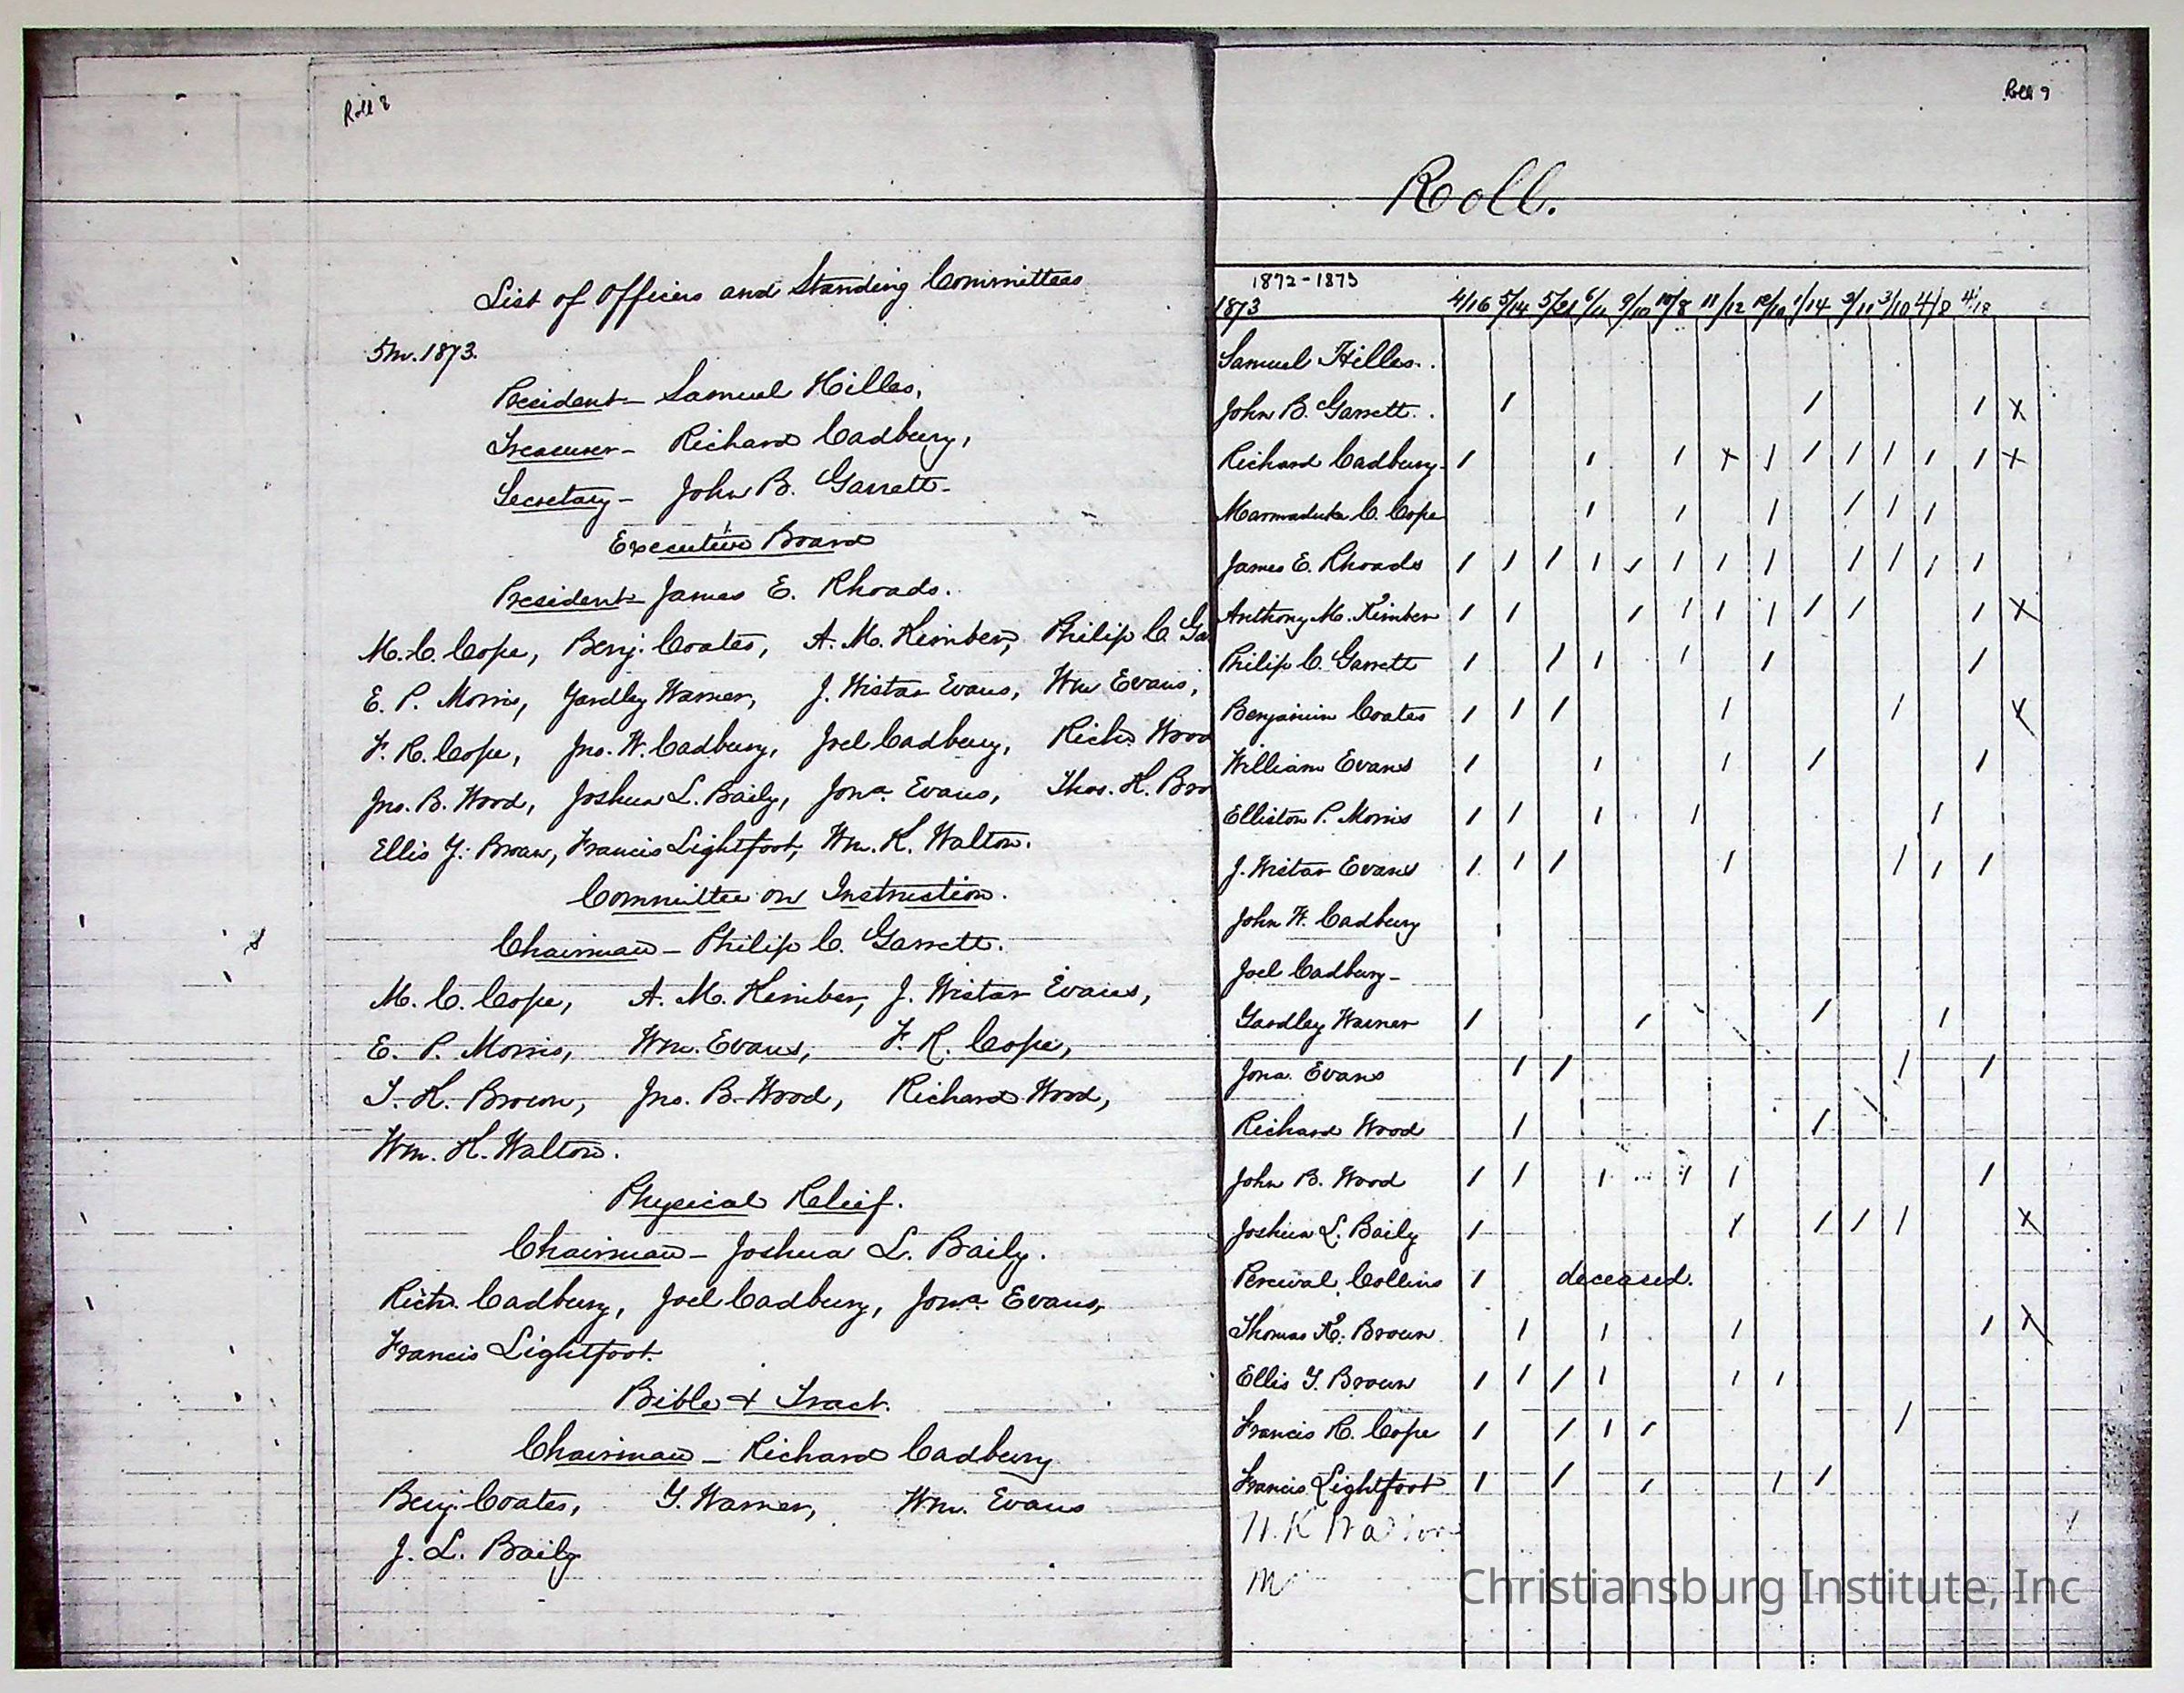 Roll 8
List of Officers and Standing Committees
5 Mo. 1873.
President – Samuel Hilles,
Treasurer – Richard Cadbury,
Secretary – John B. Garrett –
Executive Board
President – James E. Rhoads.
M. C. Cope, Benj. Coates, A. M. Kimber, Philip C. Ga
E. P. Morris, Yardley Warner, J. Wistar Evans, Wm Evans,
F. R. Cope, Jno. W. Cadbury, Joel Cadbury, Richd. Wood
Jno. B. Wood, Joshua L. Baily, Jona. Evans, Thos. K. Bro
Ellis Y. Brown, Francis Lightfoot, Wm. K. Walton.
Committee on Instruction.
Chairman – Philip C. Garrett.
M. C. Cope, A. M. Kimber, J. Wistar Evans,
E. P. Morris, Wm. Evans, F. R. Cope,
T. K. Brown, Jno. B. Wood, Richard Wood,
Wm. K. Walton.
Physical Relief.
Chairman – Joshua L. Baily.
Richd. Cadbury, Joel Cadbury, Jona. Evans,
Francis Lightfoot.
Bible & Tract.
Chairman – Richard Cadbury
Benj. Coates, Y. Warner, Wm. Evans
J. L. Baily
Roll 9
Roll.
1872-1873
1873 4/16 5/14 5/21 6/11 9/10 10/8 11/12 12/10 1/14 2/11 3/10 4/8 4/18
Samuel Hilles.
John B. Garrett. / / / x
Richard Cadbury – / / / x / / / / / / x
Marmaduke C. Cope / / / / / /
James E. Rhoads / / / / / / / / / / / /
Anthony M. Kimber / / / / / / / / / x
Philip C. Garrett / / / / / /
Benjamin Coates / / / / / x
William Evans / / / / /
Elliston P. Morris / / / / /
J. Wistar Evans / / / / / / /
John W. Cadbury
Joel Cadbury –
Yardley Warner / / / /
Jona. Evans / / / /
Richard Wood / /
John B. Wood / / / / / /
Joshua L. Baily / / / / / x
Percival Collins / deceased.
Thomas K. Brown / / / / x
Ellis Y. Brown / / / / / /
Francis R. Cope / / / / /
Francis Lightfoot / / / / /
W. K Walton /
Christiansburg Institute, Inc